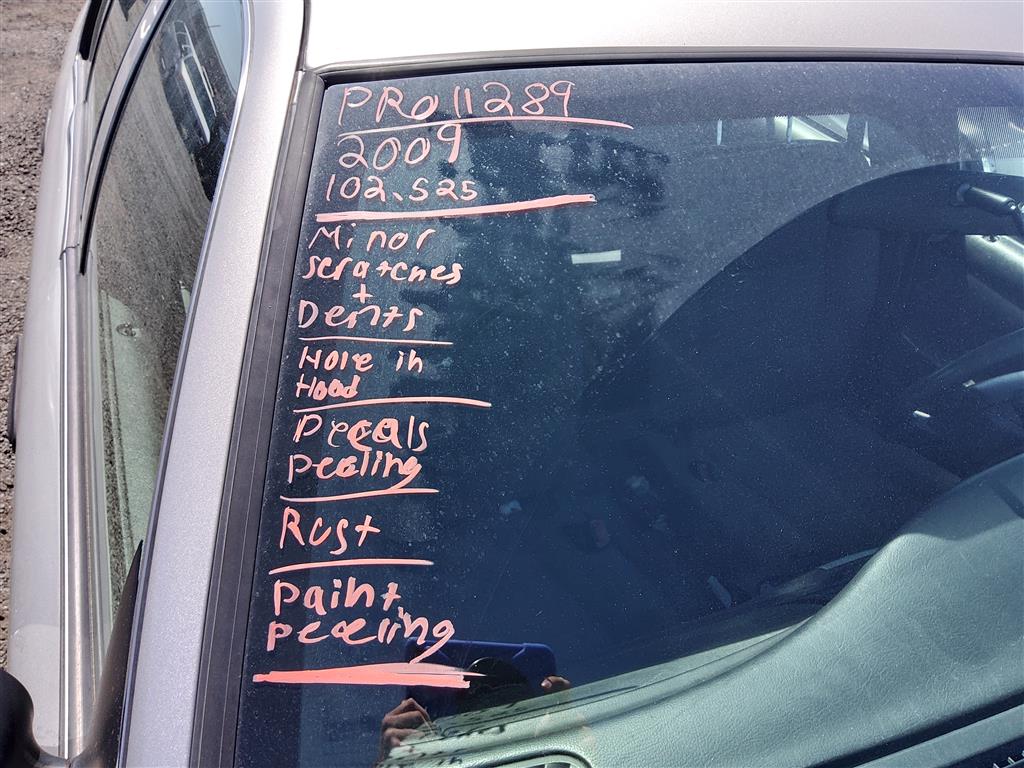 PRO11289
2009
102.525
Minor
scratches
+
Dents
Hole in
Hood
Decals
peeling
Rust
paint
peeling